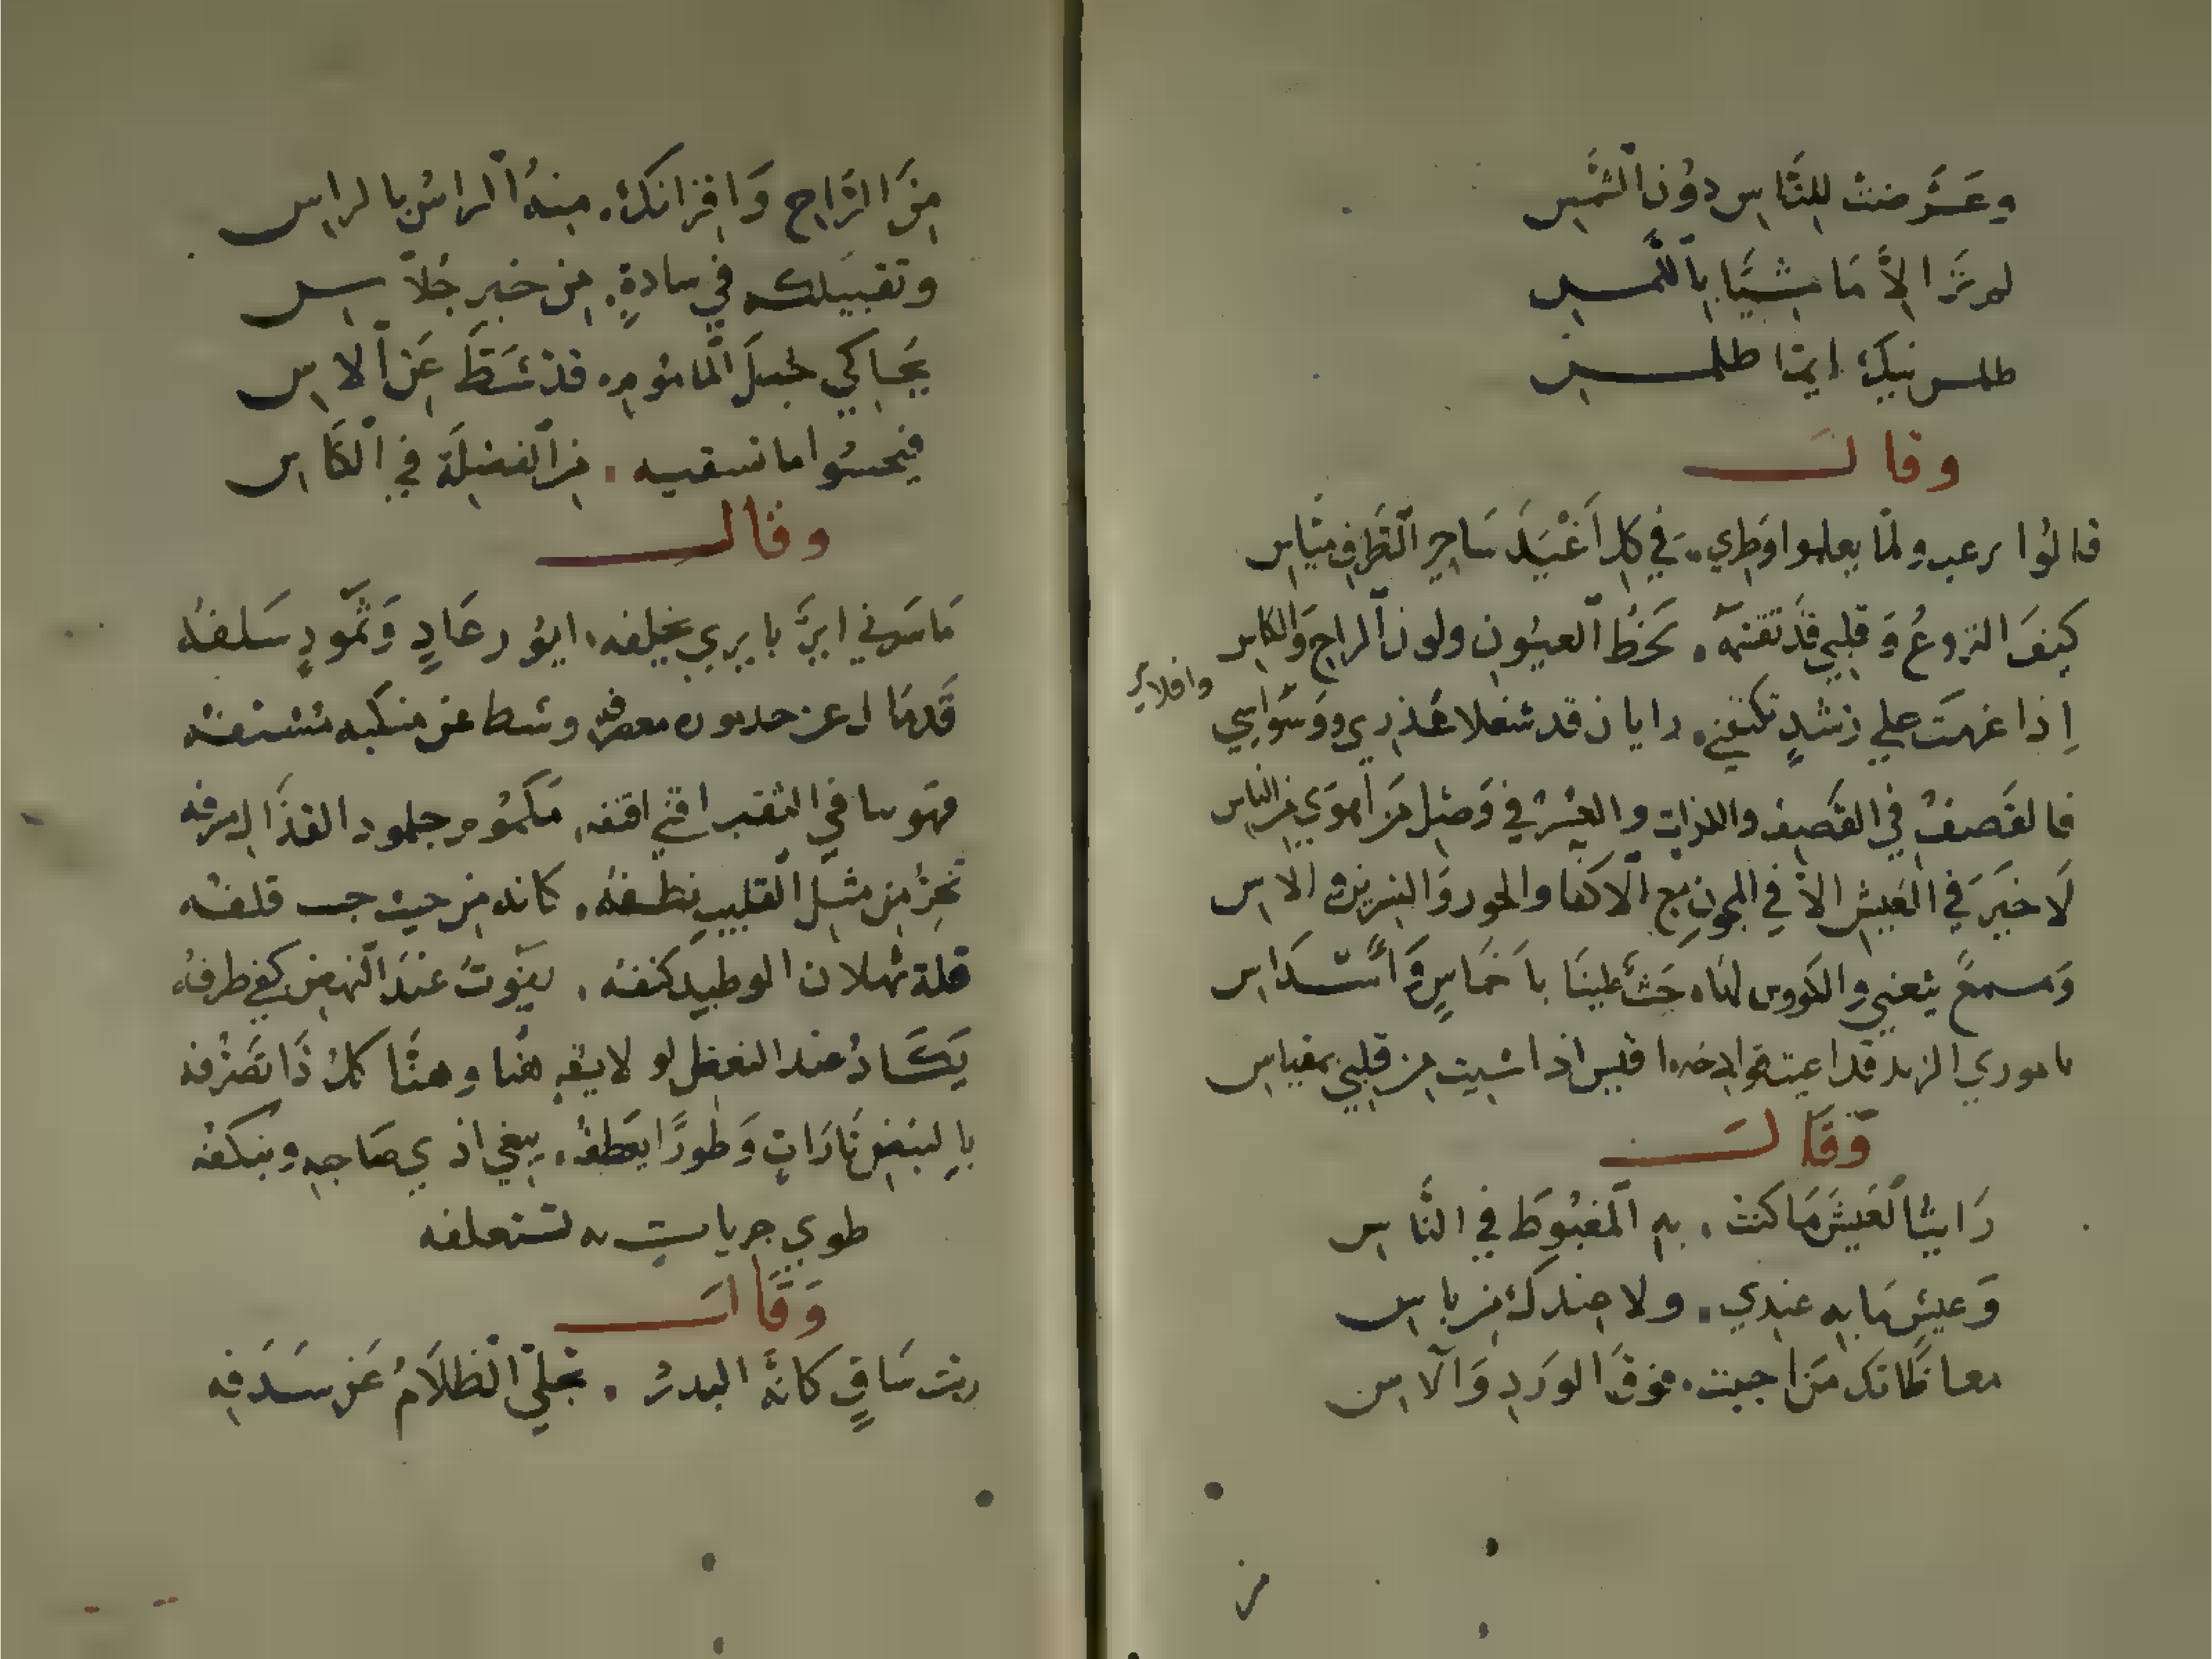 وعَرَّضتْ لِلنَّاسِ دوُنَ اَلشَّمْسِ
لم تَرَ اِلاَّ مَا مَشَيًّا بِاَللَّمسِ
طلمس نيكَ ايمّا طلمسِ
وقالَ
قالوُا برعبه ولمّا يعلموا وَطَرِي. في كلِ اَغْيَدَ سَاحِرِ اَلطَّرفِ مَيّاسِ
كيفَ النزوعُ وَ قَلبي قَد تقنّمَه. لحَظُ اَلعيُونِ ولون اَلراحِ وَالكاسِ
اِذا عزمت علي رَشَدٍ تكنفني. رايانِ قد شغلا عُذري ووَسْوَاسِي
وافلاسي
فالقَصفُ في القَصفِ واللذاتِ والعيشُ في وَصْلِ مَن اَهوَي مِن النّاسِ
لَا خَيرَ في اَلعَيشِ الاّ في المجونِ مع اَلاكفا والحور وَالنسرين والاسِ
وَمسمعً يتغني والكووس لنَا. حَثّ علينَا باَخمَاسٍ وَاَسْدَاسِ
ياموري الزند قد اعيت قوادحه. اقبس اذا شيت مِن قلبي بمقباسِ
وَقَالَ
رَايتُ اَلعَيشَ مَا كنتْ. بِهِ اَلمَغبُوطَ في النَّاسِ
وَعيشٍ مَا بِه عندِي. ولا عندكَ مِن باسِ
معاطَاتكَ مَن احببت. فوقَ الوَردِ وَاَلاسِ
مِنَ الرَّاحِ وَاقرانكَ. مِنهُ اَلراسُ بالراسِ
وتقبيلك في سادةٍ. مِن خير جُلاَّسِ
يحَاكي لجبلَ اَلماموم. قد شَطَّ عَن اَلاسِ
فيحسوُا ما تسقيه. مِن اَلفضلَة في اَلكاَسِ
وقال
مَا سَرني ايرٌ بايري يخلفه. ايوُر عَادٍ وَثمّودٍ سَلفُه
قَدمَال عن وشط عن منكبه
تخرُ مِن مثلِ اَلقليبِ نطفهُ. كانه مِن حيث جب قلفُه
قلة ثهلان الموطيد كنفهُ. ينوتُ عندَ اَلنهض كفي طرفُه
يَكَادُ عند النعظ لو لا يقه هنا وهنَّا كلُ ذَا تَصَرُفه
بالنبضِ تَارَاتٍ وَطورًا يعَطفُ. يبغي اذي صَاحبه وينكفُه
طوي جريات به تستعلفه
وَقَالَ
ربت سَاقٍ كانَّهَ البدرُ. تجلي اَلظلاَمُ عَن سَدَفِه